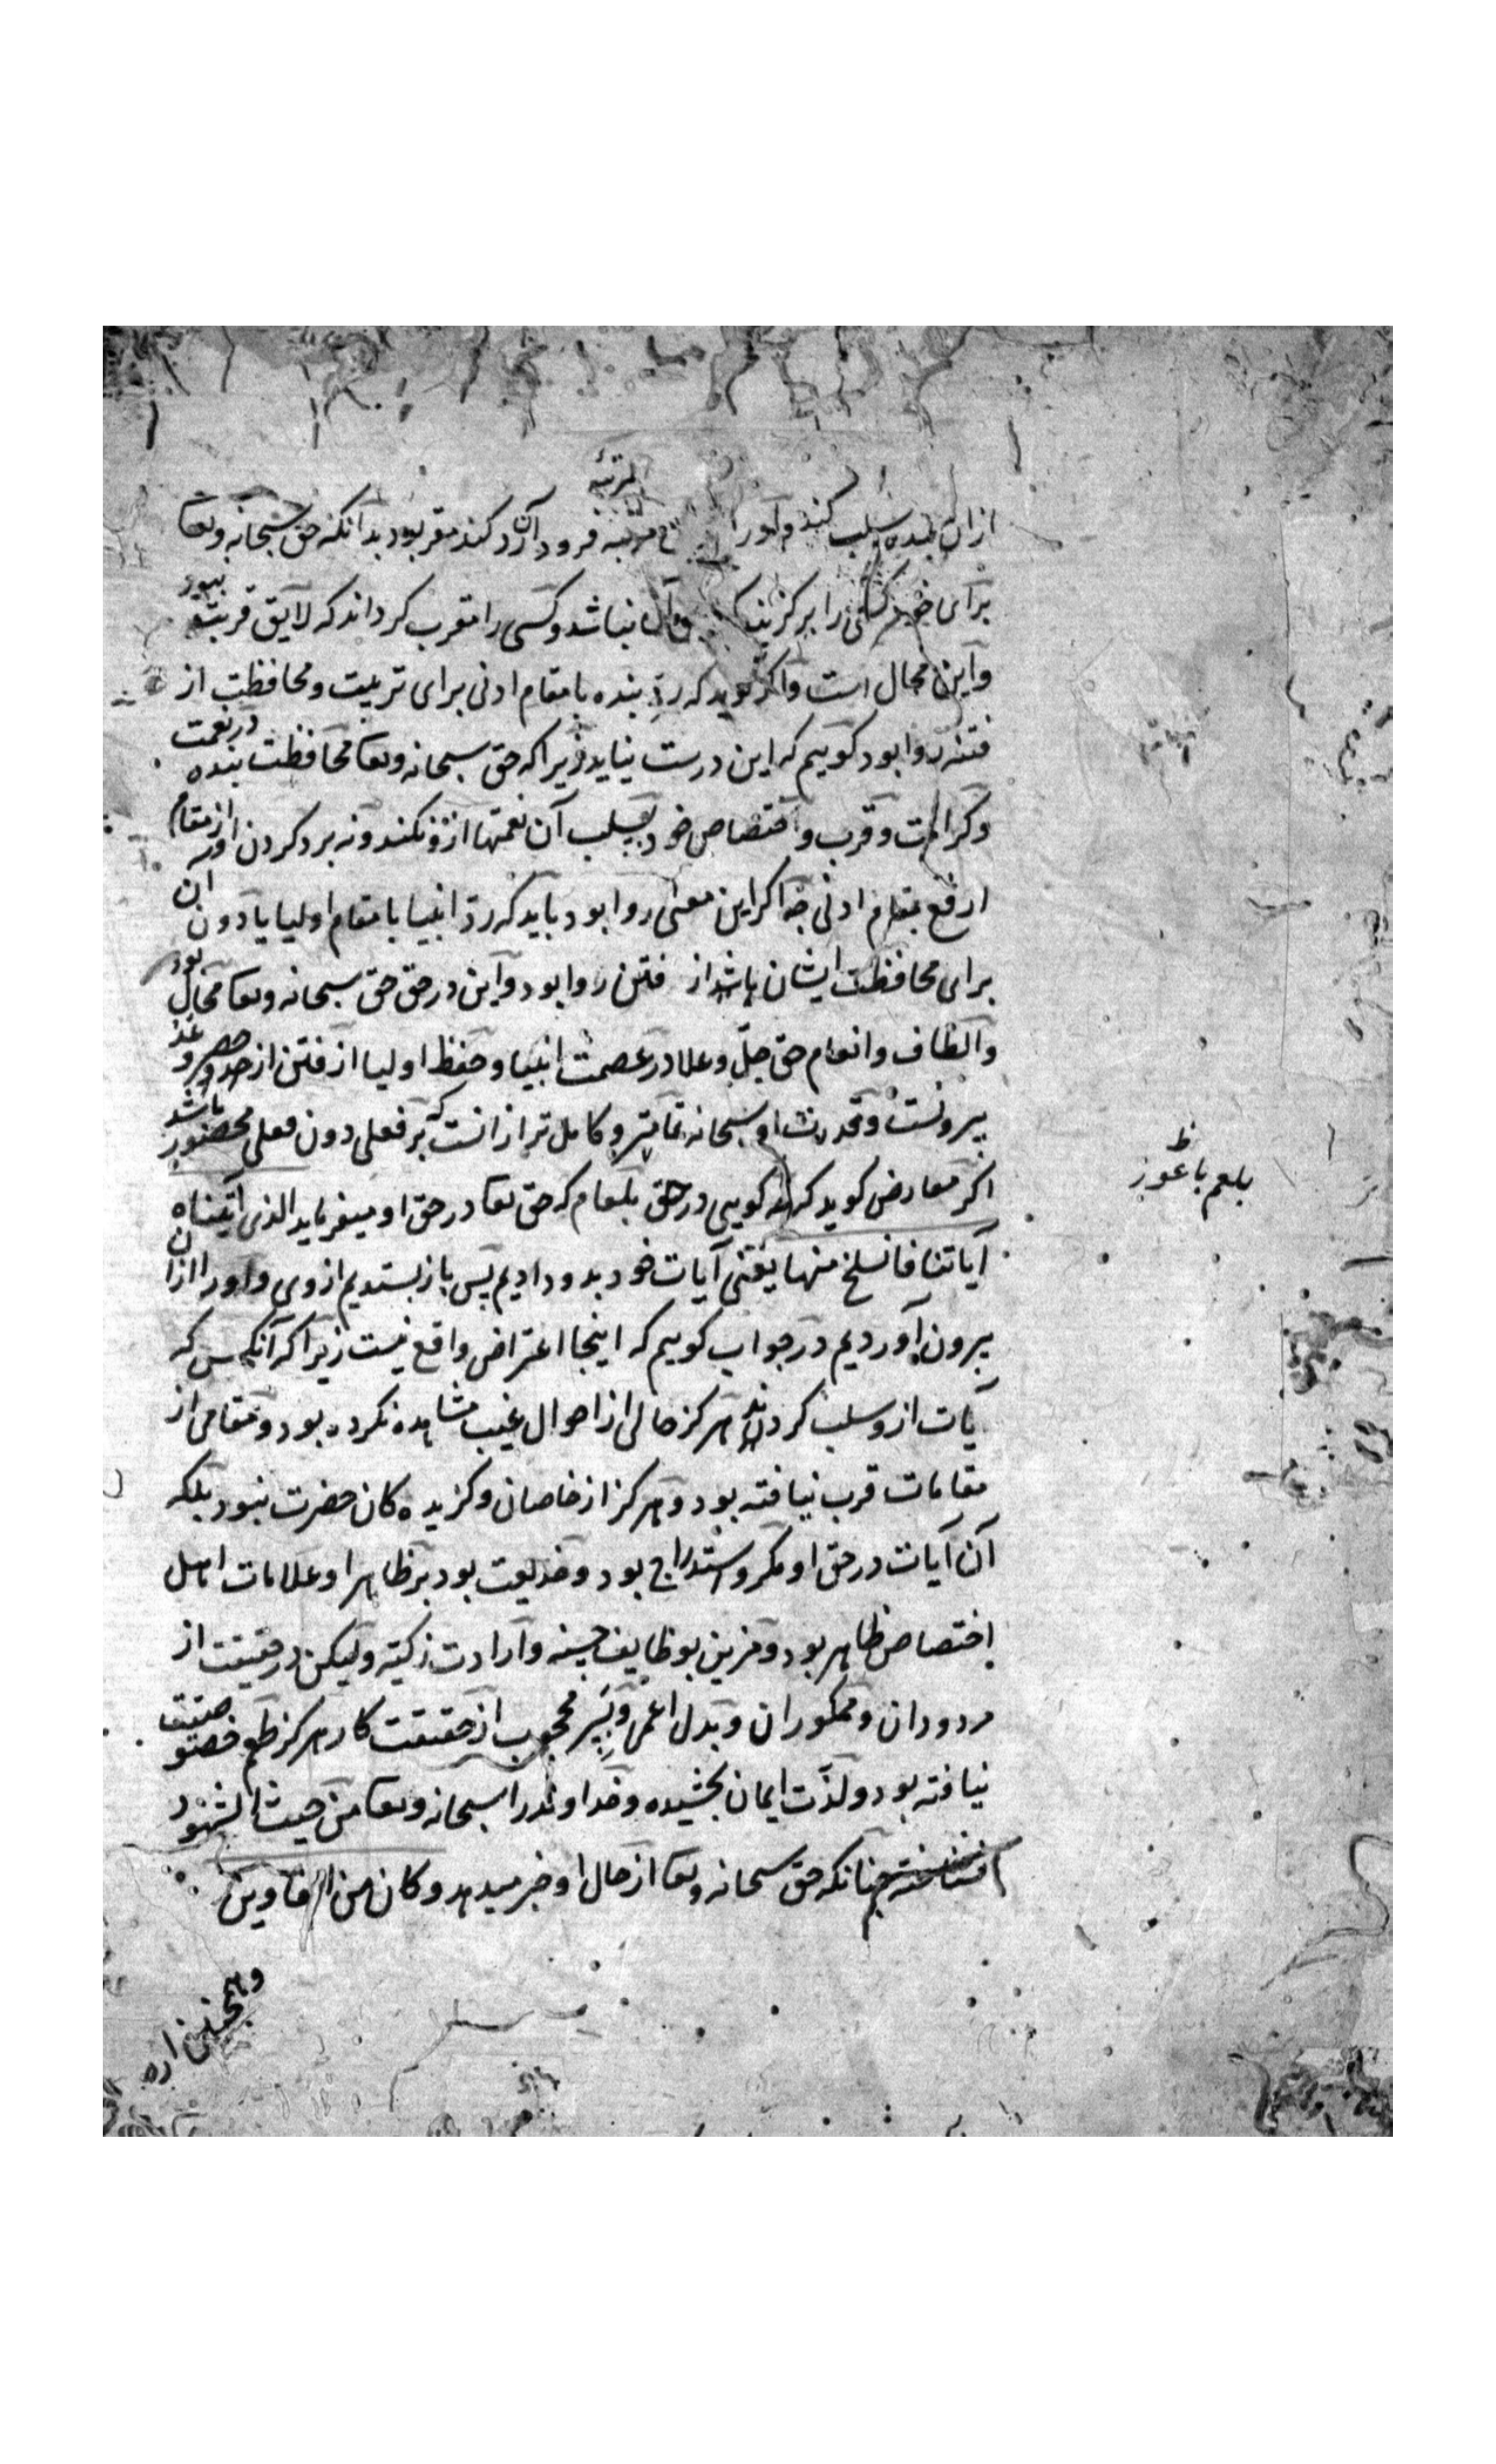 لمرتبهٔ
ازان بنده سلب کند و اورا مرتبه فرود آرد کند مقر بود بدآنکه حق سبحانه وتعا
برای خود کسی را برگزیند نباشد و کسی را مقرب کرداند که لایق قربتش نبود
وآین محال است وآکر کوید که ردّ بنده بامقام ادنی برای تربیت و محافظت از
فتنه روا بود کوییم که این درست نیاید زیراکه حق سبحانه وتعا محافظت بنده در نعمت
وکرامت و قرب و اختصاص خود بسلب آن نعمتها ازو نکند و نه برد کردن او از مقام
ارفع بمقام ادنی چه اکر این معنی روا بود باید که ردّ انبیا بامقام اولیا یا دون ان
برای محافظت ایشان باشد از فتن روا بود وآین در حق حق سبحانه وتعا محال بود
والطاف و انعام حق جلّ وعلا در عصمت انبیا و حفظ اولیا از فتن از حصر و عد
بیرونست و قدرت او سبحانه تمامتر و کامل تر ازانست که بر فعلی دون فعلی محصور باشد
اکر معارض کوید که چه کویی در حق بلعام که حق تعا در حق او میفرماید الذی آتیناه
آیاتنا فانسلخ منها یعنی آیات خود بدو دادیم پس باز بستدیم ازوی و اورا ازان
بیرون آوردیم در جواب کوییم که اینجا اعتراض واقع نیست زیراکه آنکس که
آیات ازو سلب کردند هرکز حالی از احوال غیب مشاهده نکرده بود و مقامی از
مقامات قرب نیافته بود و هرکز از خاصان و کزیده کان حضرت نبود بلکه
آن آیات در حق او مکر و استدراج بود و خدیعت بود بر ظاهر او علامات اهل
اختصاص ظاهر بود و مزین بوظایف حسنه و آرادت زکیّه ولیکن در حقیقت از
مردودان و ممکوران و بدل اعمی و بسِر محجوب از حقیقت کار هرکز طعم خصوصیت
نیافته بود و لذّت ایمان نچشیده و خداوند را سبحانه وتعا من حیث الشهود
نشناخته چنانکه حق سبحانه وتعا از حال او خبر میدهد و کان من الغاوین
بلعم باعور
ظ
وهمچنین